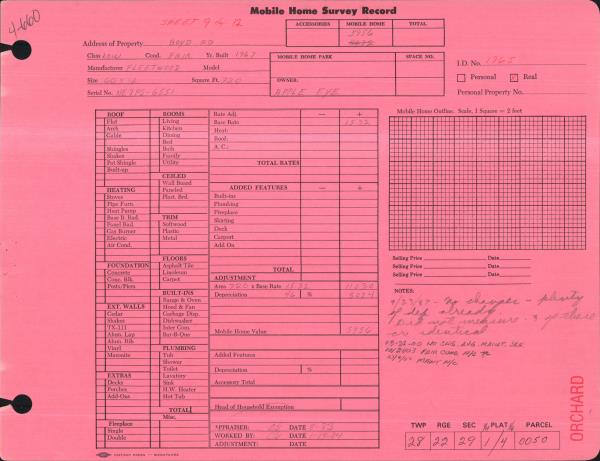 Mobile Home Survey Record
4-6600
SHEET 9 of 12
ACCESSORIES MOBILE HOME TOTAL
5956
Address of Property BOYD RD
Class LOW Cond. FAIR Yr. Built 1967
Manufacturer FLEETWOOD Model
Size 60X12 Square Ft. 720
Serial No.
MOBILE HOME PARK SPACE NO.
OWNER:
APPLE EYE
I.D. No. 1765
Personal Real
Personal Property No.
ROOF
Flat
Arch
Gable
Shingles
Shakes
Pat Shingle
Built-up
HEATING
Stoves
Pipe Furn.
Heat Pump
Base B. Rad.
Panel Rad.
Gas Burner
Electric
Air Cond.
FOUNDATION
Concrete
Conc. Blk.
Posts/Piers
EXT. WALLS
Cedar
Shakes
TX-111
Alum. Lap
Alum. Rib
Vinyl
Masonite
EXTRAS
Decks
Porches
Add-Ons
Fireplace
Single
Double
ROOMS
Living
Kitchen
Dining
Bed
Bath
Family
Utility
CEILED
Wall Board
Paneled
Plast. Brd.
TRIM
Softwood
Plastic
Metal
FLOORS
Asphalt Tile
Linoleum
Carpet
BUILT-INS
Range & Oven
Hood & Fan
Garbage Disp.
Dishwasher
Inter Com.
Bar-B-Que
PLUMBING
Tub
Shower
Toilet
Lavatory
Sink
H.W. Heater
Hot Tub
TOTAL
Misc.
Rate Adj. — +
Base Rate 15.32
Heat:
Roof:
A. C.:
TOTAL RATES
ADDED FEATURES — +
Built-ins
Plumbing
Fireplace
Skirting
Deck
Carport
Add On
TOTAL
ADJUSTMENT
Area 720 x Base Rate 15.32 11030
Depreciation 46 % 5074
Mobile Home Value 5956
Added Features
Depreciation %
Accessory Total
Head of Household Exemption
APPRAISER: DATE 5-83
WORKED BY: DATE
ADJUSTMENT: DATE
Mobile Home Outline. Scale, 1 Square = 2 feet
Selling Price Date
Selling Price Date
Selling Price Date
NOTES:
4/27/87 - No changes - plenty
of dep already.
Did not measure - 3 of these
are identical
AVG. MAINT.
FAIR COND. N/C
N/C
ORCHARD
TWP RGE SEC PLAT PARCEL
28 22 29 1/4 0050